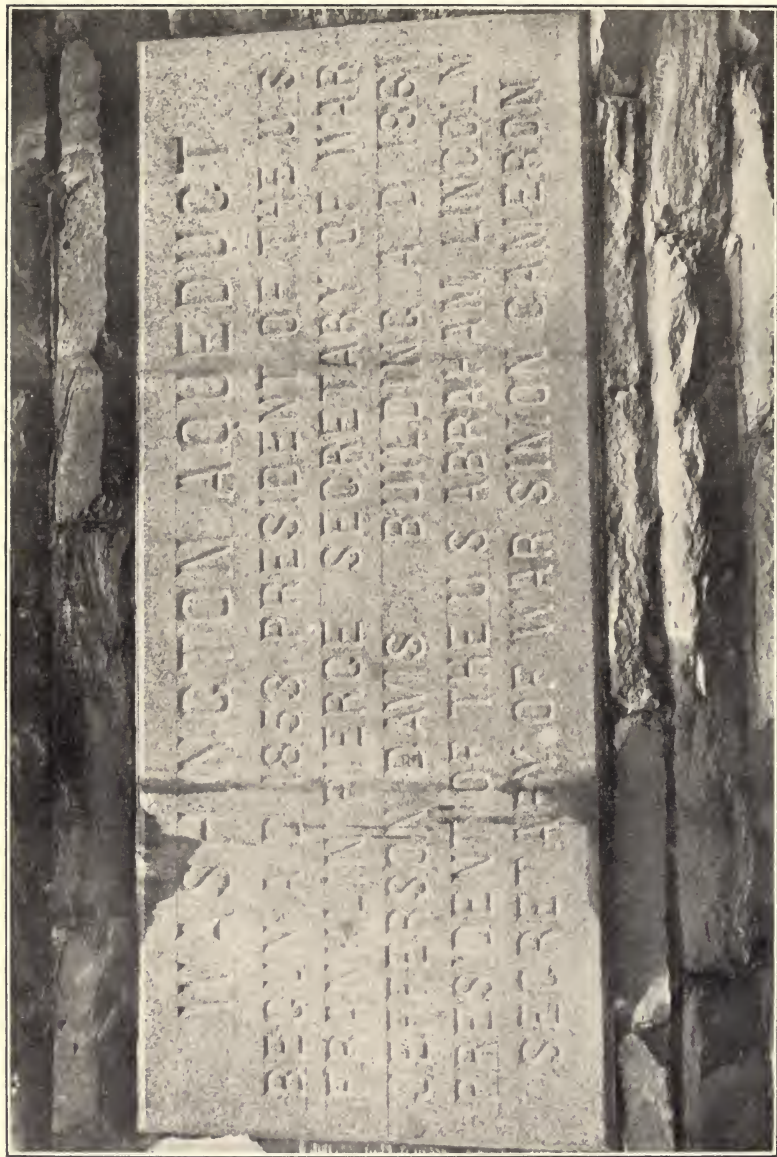 WASHINGTON AQUEDUCT
BEGUN A.D. 1853. PRESIDENT OF THE U.S.
FRANKLIN PIERCE SECRETARY OF WAR
JEFFERSON DAVIS. BUILDING A.D. 1861
PRESIDENT OF THE U.S. ABRAHAM LINCOLN
SECRETARY OF WAR SIMON CAMERON